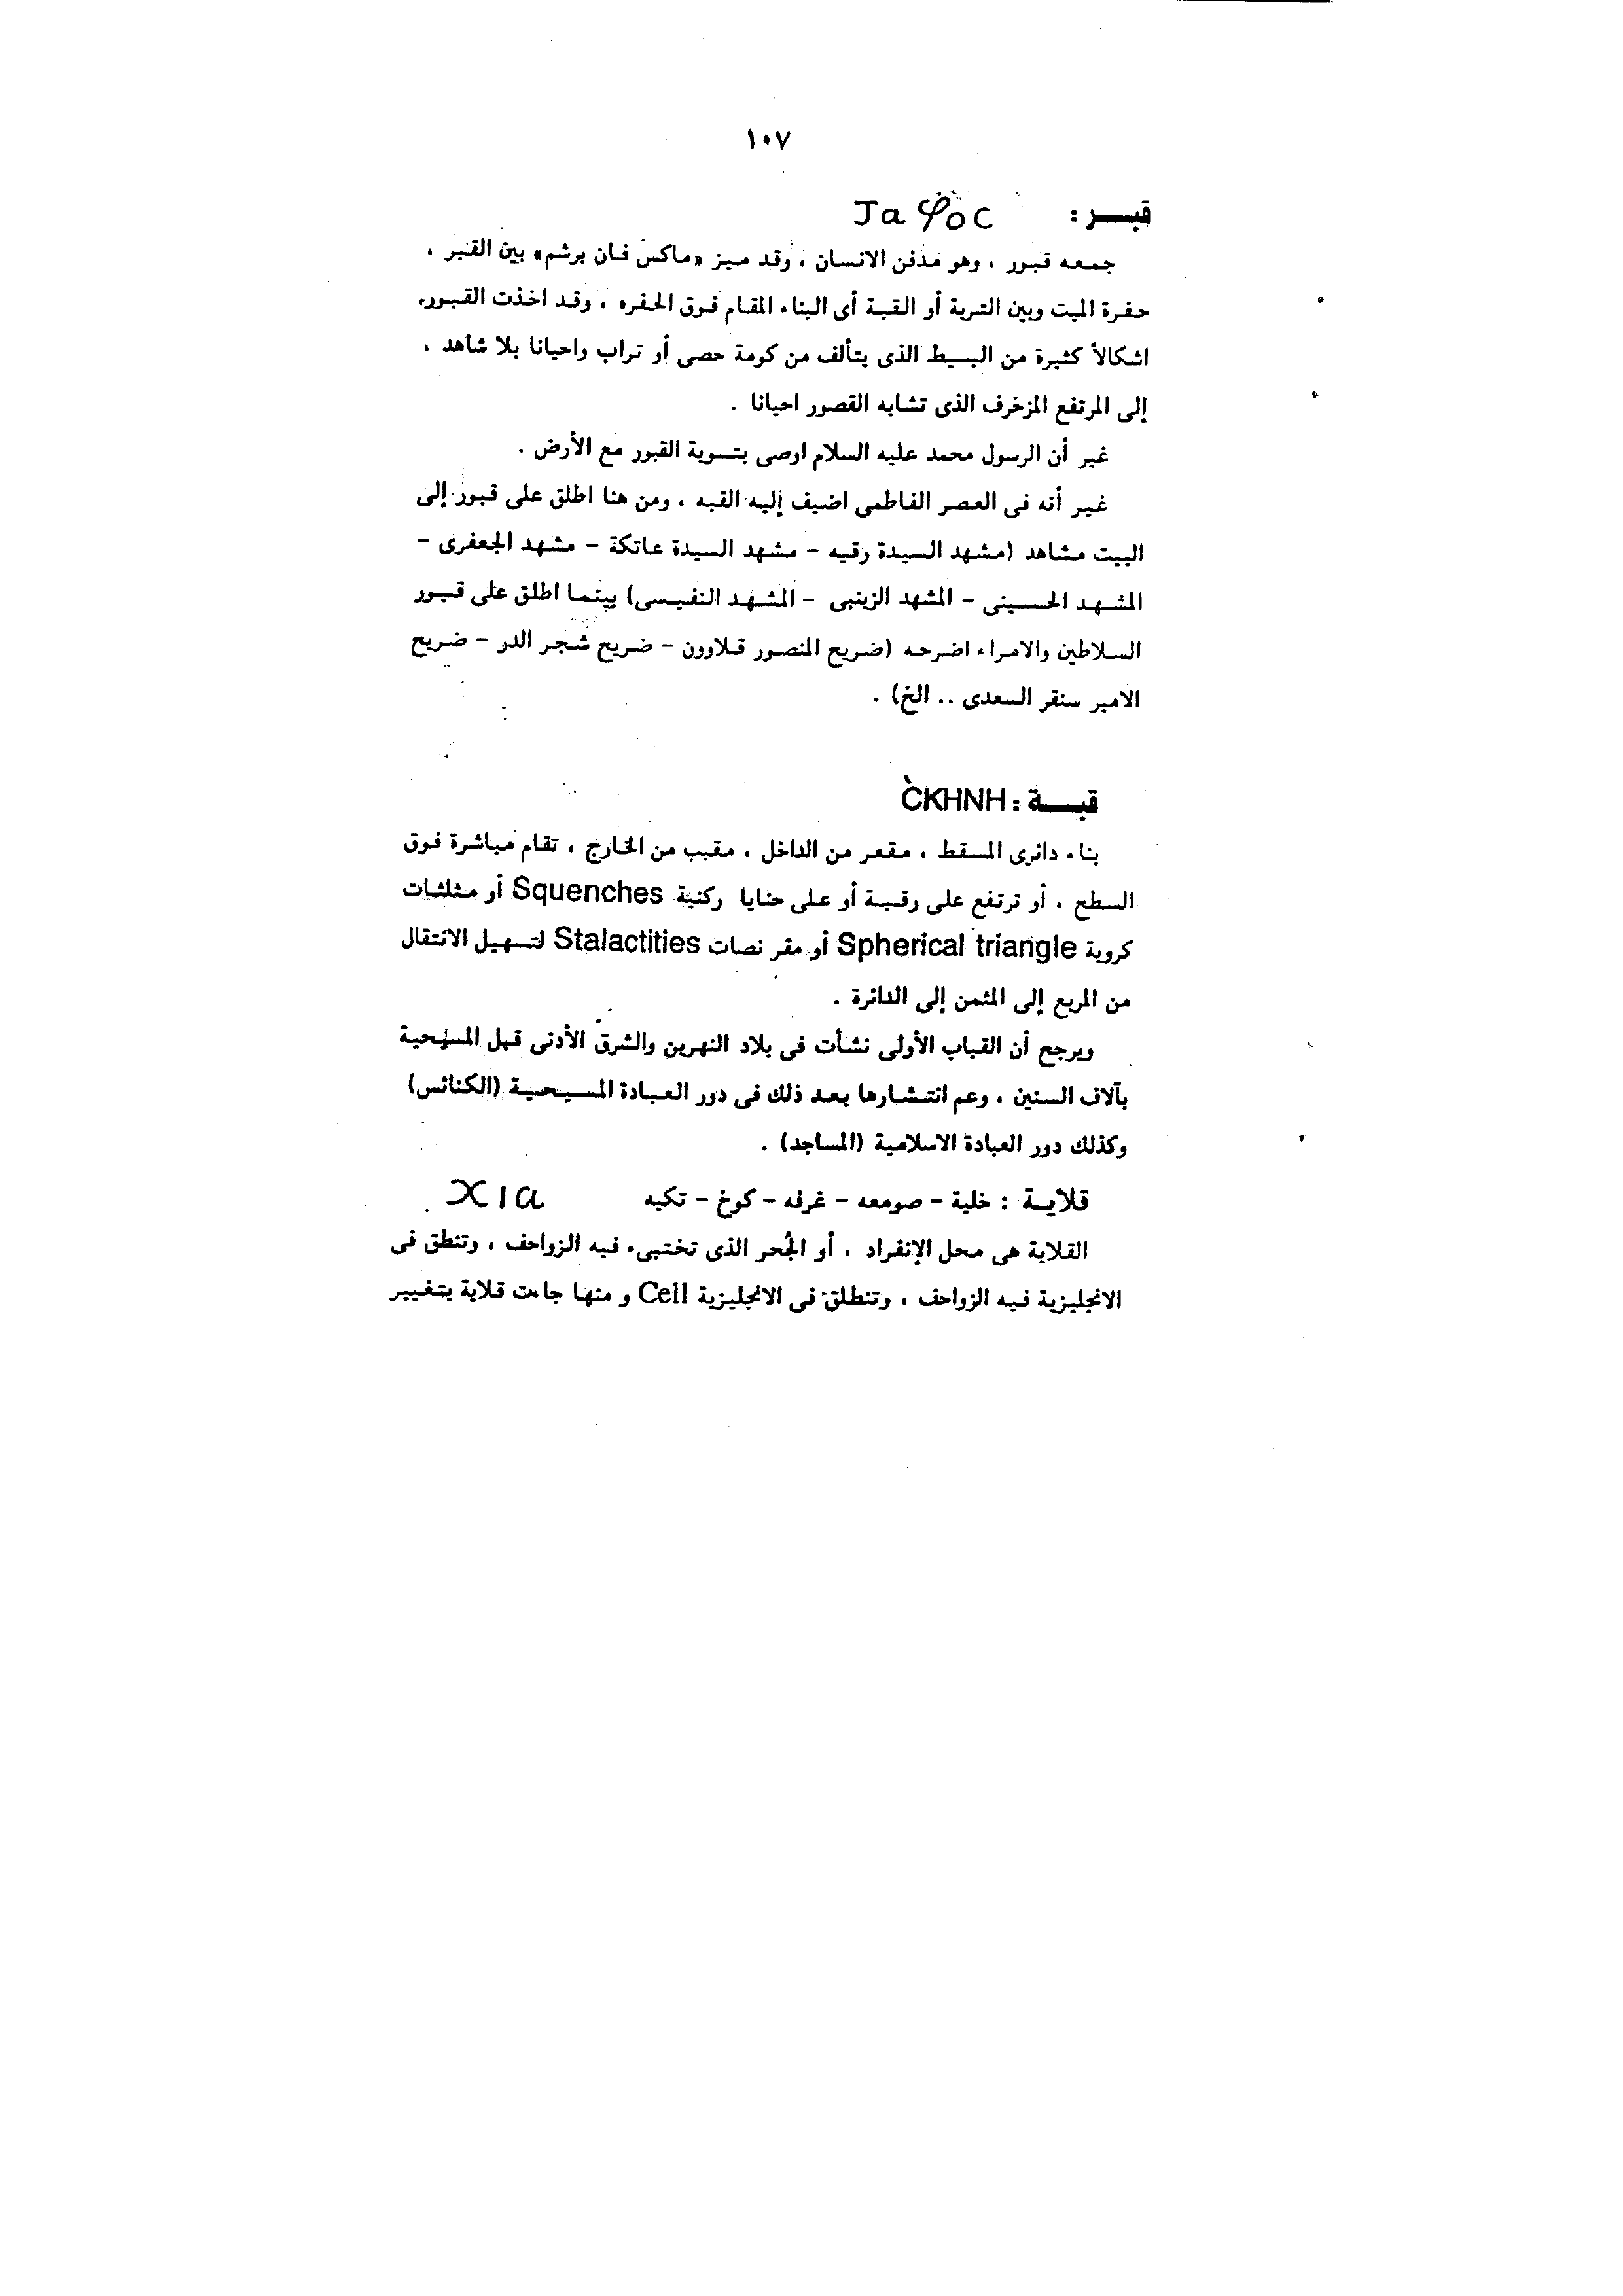 ١٠٧
قبـــر : Ja φoc
جمعه قبور ، وهو مدفن الانسان ، وقد ميز «ماكس فان برشم» بين القبر ،
حفرة الميت وبين التربة أو القبة أى البناء المقام فوق الحفره ، وقد اخذت القبور
اشكالاً كثيرة من البسيط الذى يتألف من كومة حصى أو تراب واحيانا بلا شاهد ،
إلى المرتفع المزخرف الذى تشابه القصور احيانا .
غير أن الرسول محمد عليه السلام اوصى بتسوية القبور مع الأرض .
غير أنه فى العصر الفاطمى اضيف إليه القبه ، ومن هنا اطلق على قبور إلى
البيت مشاهد (مشهد السيدة رقيه - مشهد السيدة عاتكة - مشهد الجعفرى -
المشهد الحسينى - المشهد الزينبى - المشهد النفيسى) بينما اطلق على قبور
السلاطين والامراء اضرحه (ضريح المنصور قلاوون - ضريح شجر الدر - ضريح
الامير سنقر السعدى .. الخ) .
قبـــة : ⲤKHNH
بناء دائرى المسقط ، مقعر من الداخل ، مقبب من الخارج ، تقام مباشرة فوق
السطح ، أو ترتفع على رقبة أو على حنايا ركنية Squenches أو مثلثات
كروية Spherical triangle أو مقر نصات Stalactities لتسهيل الانتقال
من المربع إلى المثمن إلى الدائرة .
ويرجع أن القباب الأولى نشأت فى بلاد النهرين والشرق الأدنى قبل المسيحية
بآلاف السنين ، وعم انتشارها بعد ذلك فى دور العبادة المسيحية (الكنائس)
وكذلك دور العبادة الاسلامية (المساجد) .
قلاية : خلية - صومعه - غرفه - كوخ - تكيه X ı a
القلاية هى محل الإنفراد ، أو الجُحر الذى تختبىء فيه الزواحف ، وتنطق فى
الانجليزية فيه الزواحف ، وتنطلق فى الانجليزية Cell و منها جاءت قلاية بتغيير